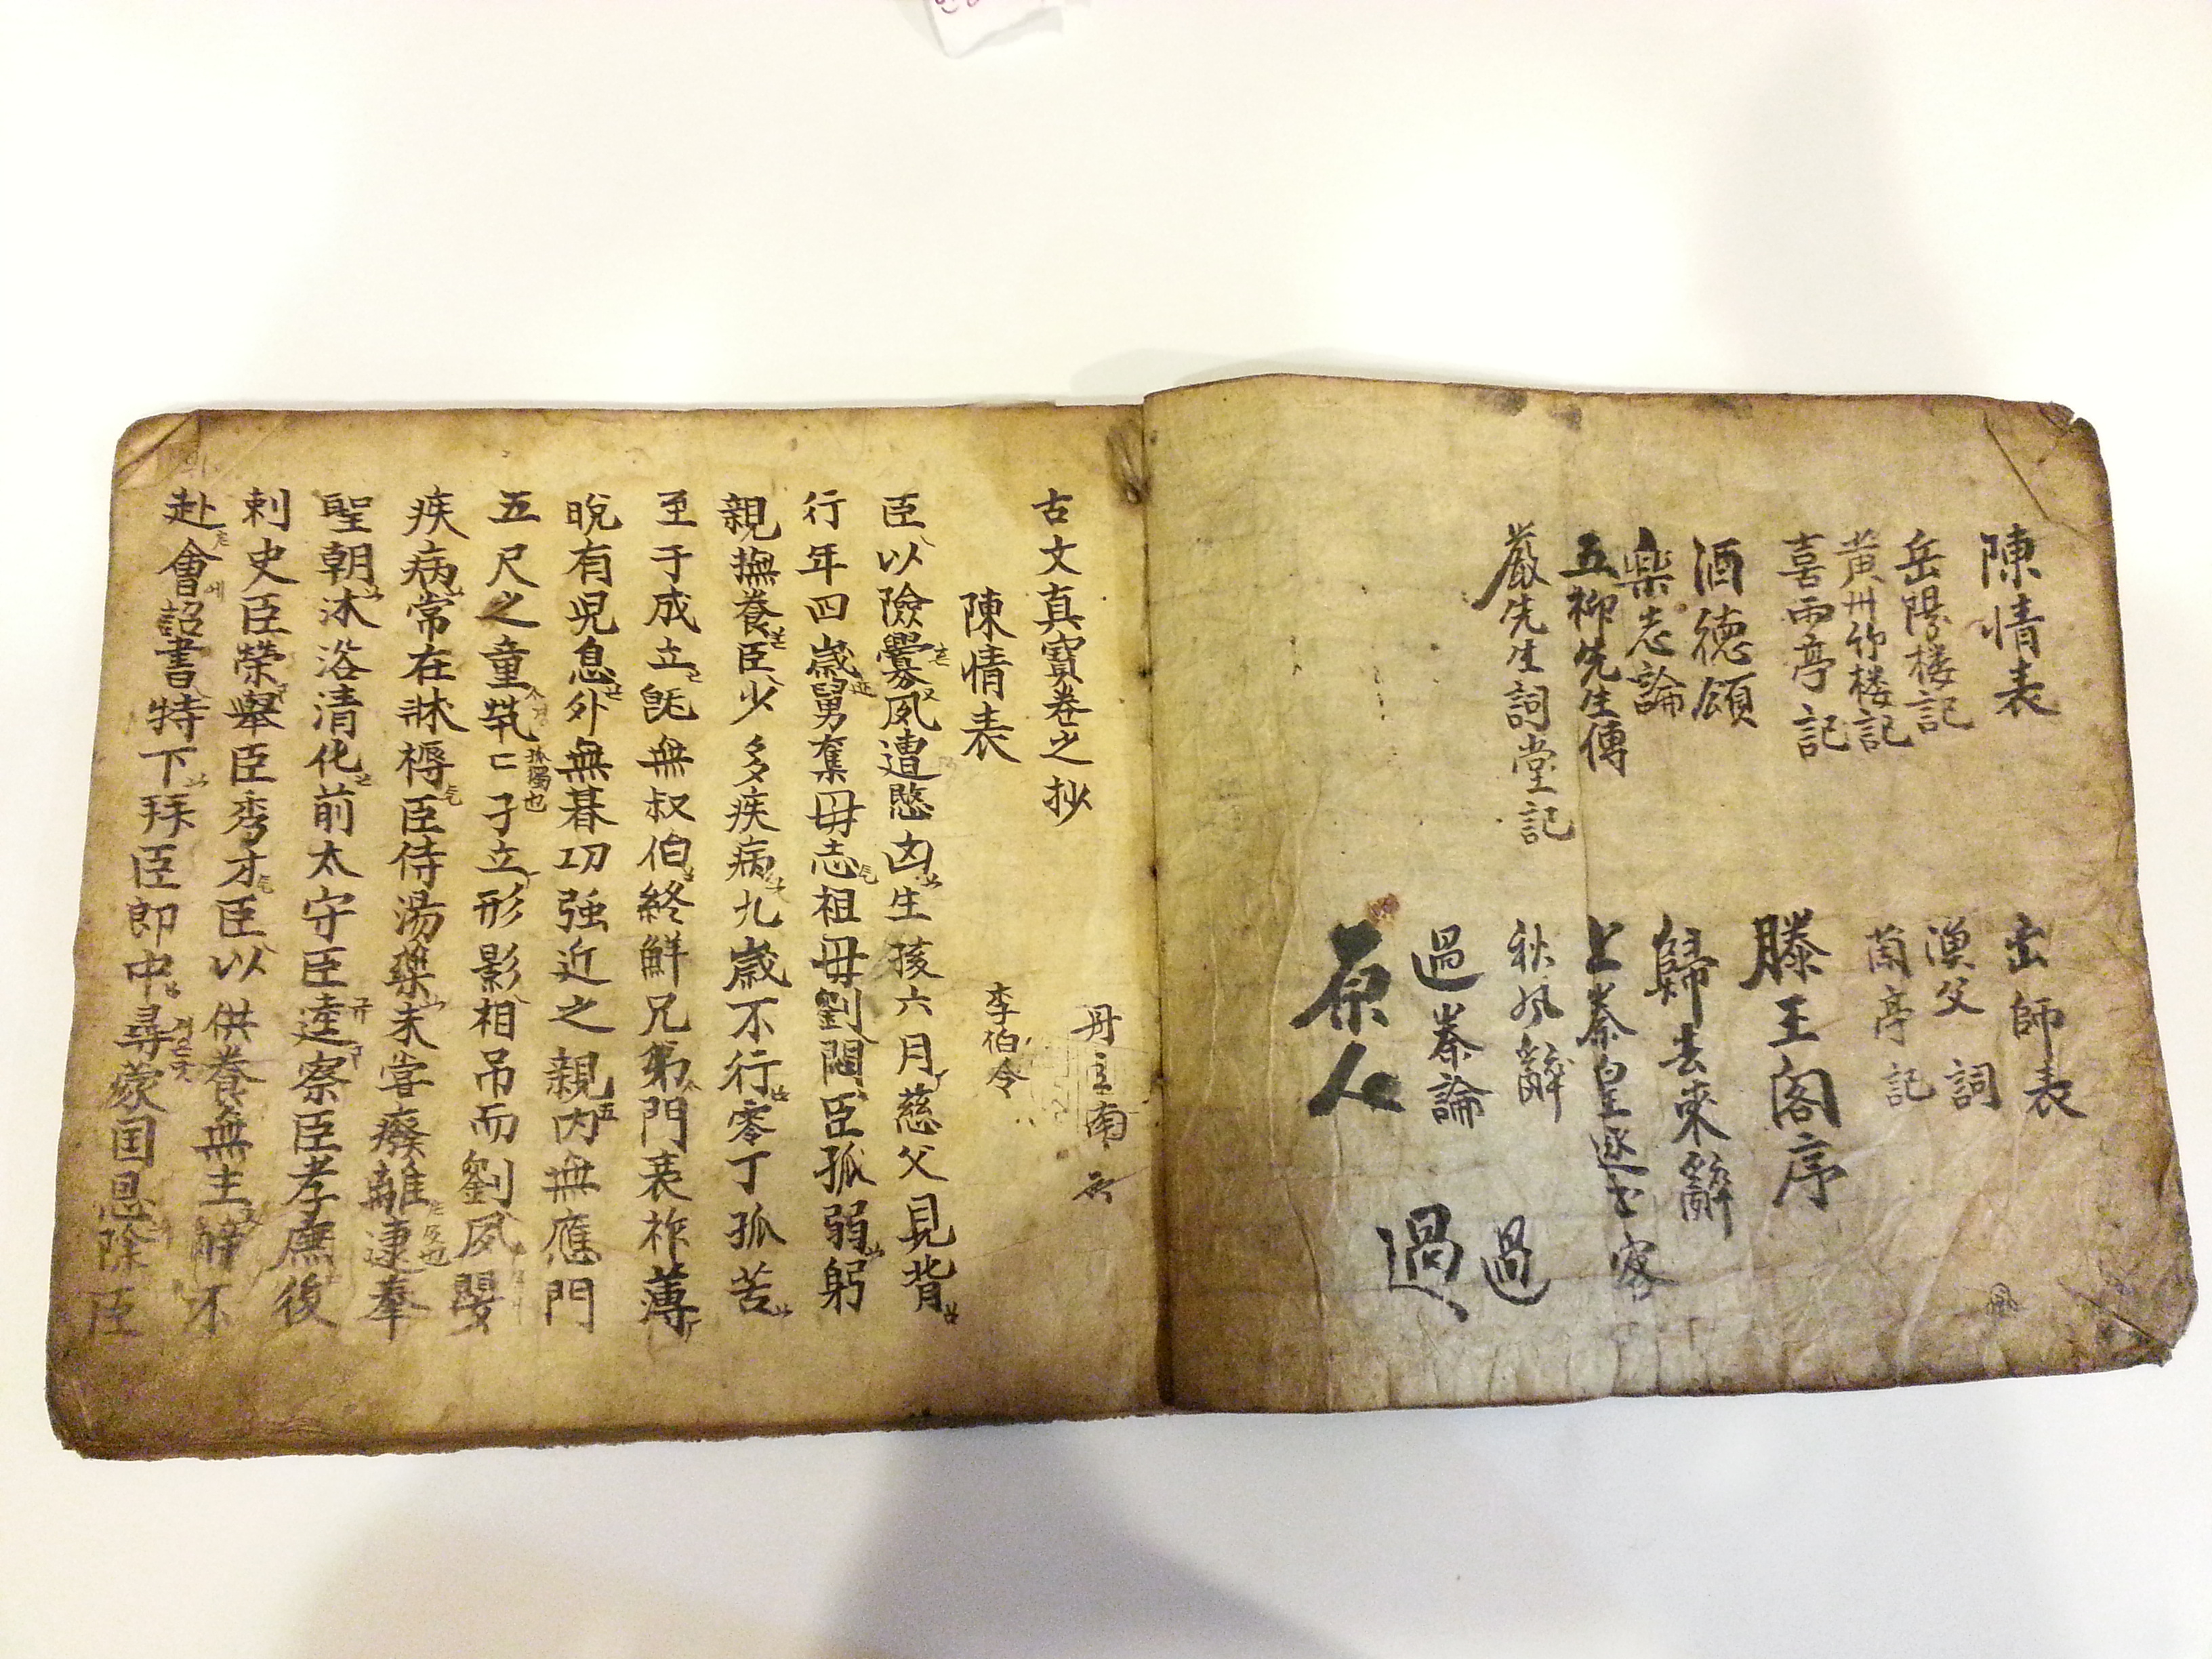 陳情表
岳陽楼記
黃州竹楼記
喜雨亭記
酒德頌
樂志論
五柳先生傳
嚴先生詞堂記
出師表
漁父詞
蘭亭記
滕王閣序
歸去來辭
上秦皇逐客
秋風辭
過秦論
原人
過
過
古文真寶卷之抄
陳情表
李伯令
臣以險釁夙遭愍凶生孩六月慈父見背
行年四歲舅奪母志祖母劉閔臣孤弱躬
親撫養臣少多疾病九歲不行零丁孤苦
至于成立旣無叔伯終鮮兄弟門衰祚薄
晩有兒息外無朞功強近之親內無應門
五尺之童煢〻孑立形影相吊而劉夙嬰
孤獨也
疾病常在牀褥臣侍湯藥未嘗癈離逮奉
聖朝沐浴清化前太守臣逵察臣孝廉後
刺史臣榮擧臣秀才臣以供養無主辭不
赴會詔書特下拜臣郎中尋蒙国恩除臣